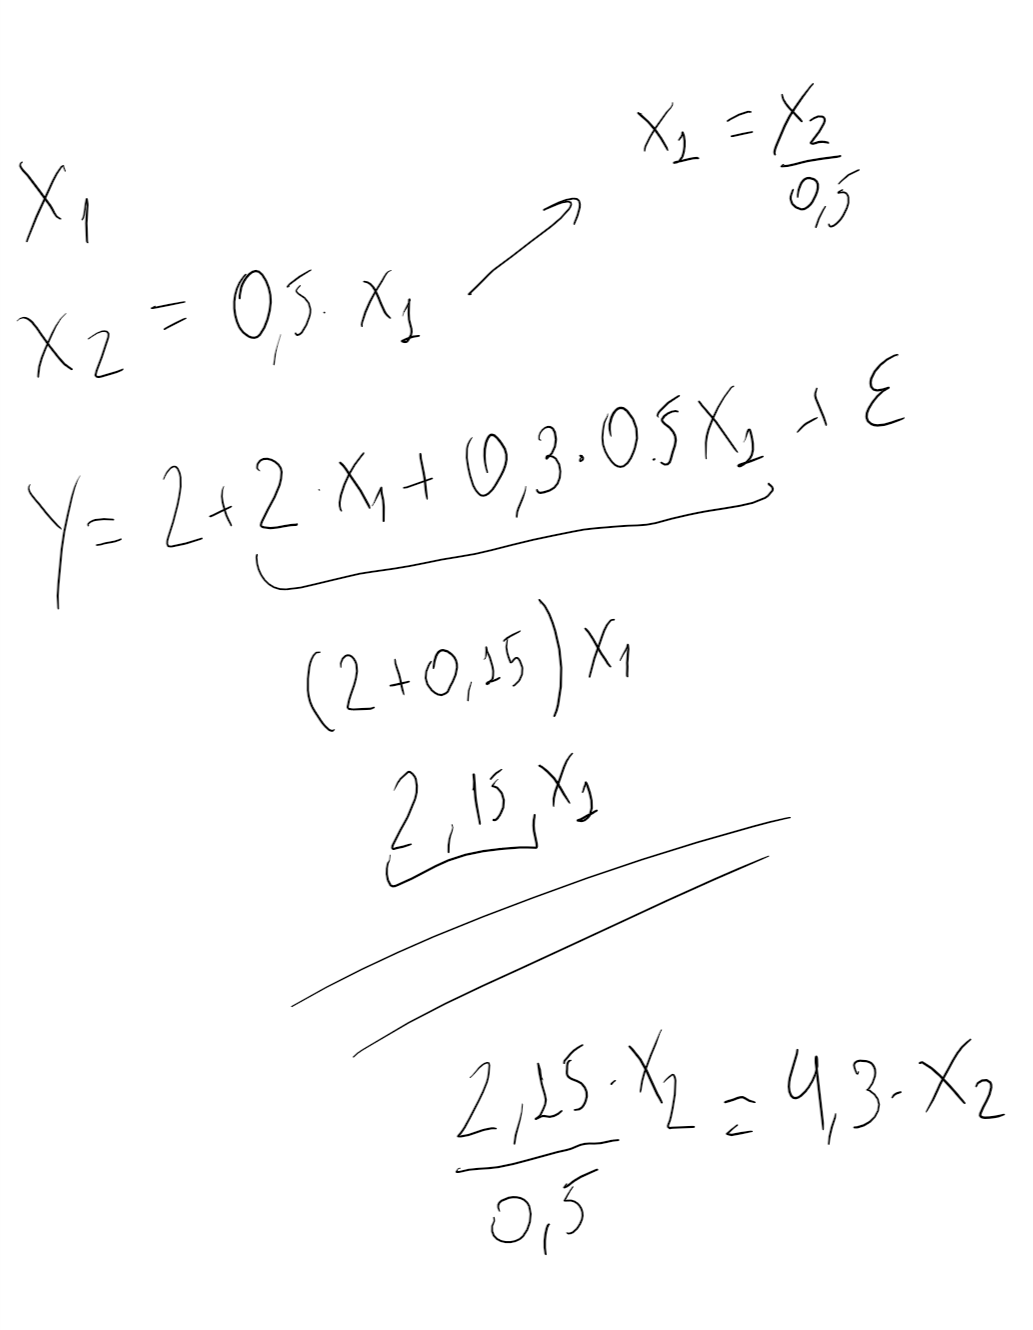 X₁ = X₂ / 0,5
X₁
X₂ = 0,5 · X₁
Y = 2 + 2 · X₁ + 0,3 · 0.5 X₁ + ε
(2 + 0,15) X₁
2,15 X₁
2,15 · X₂ / 0,5 = 4,3 · X₂